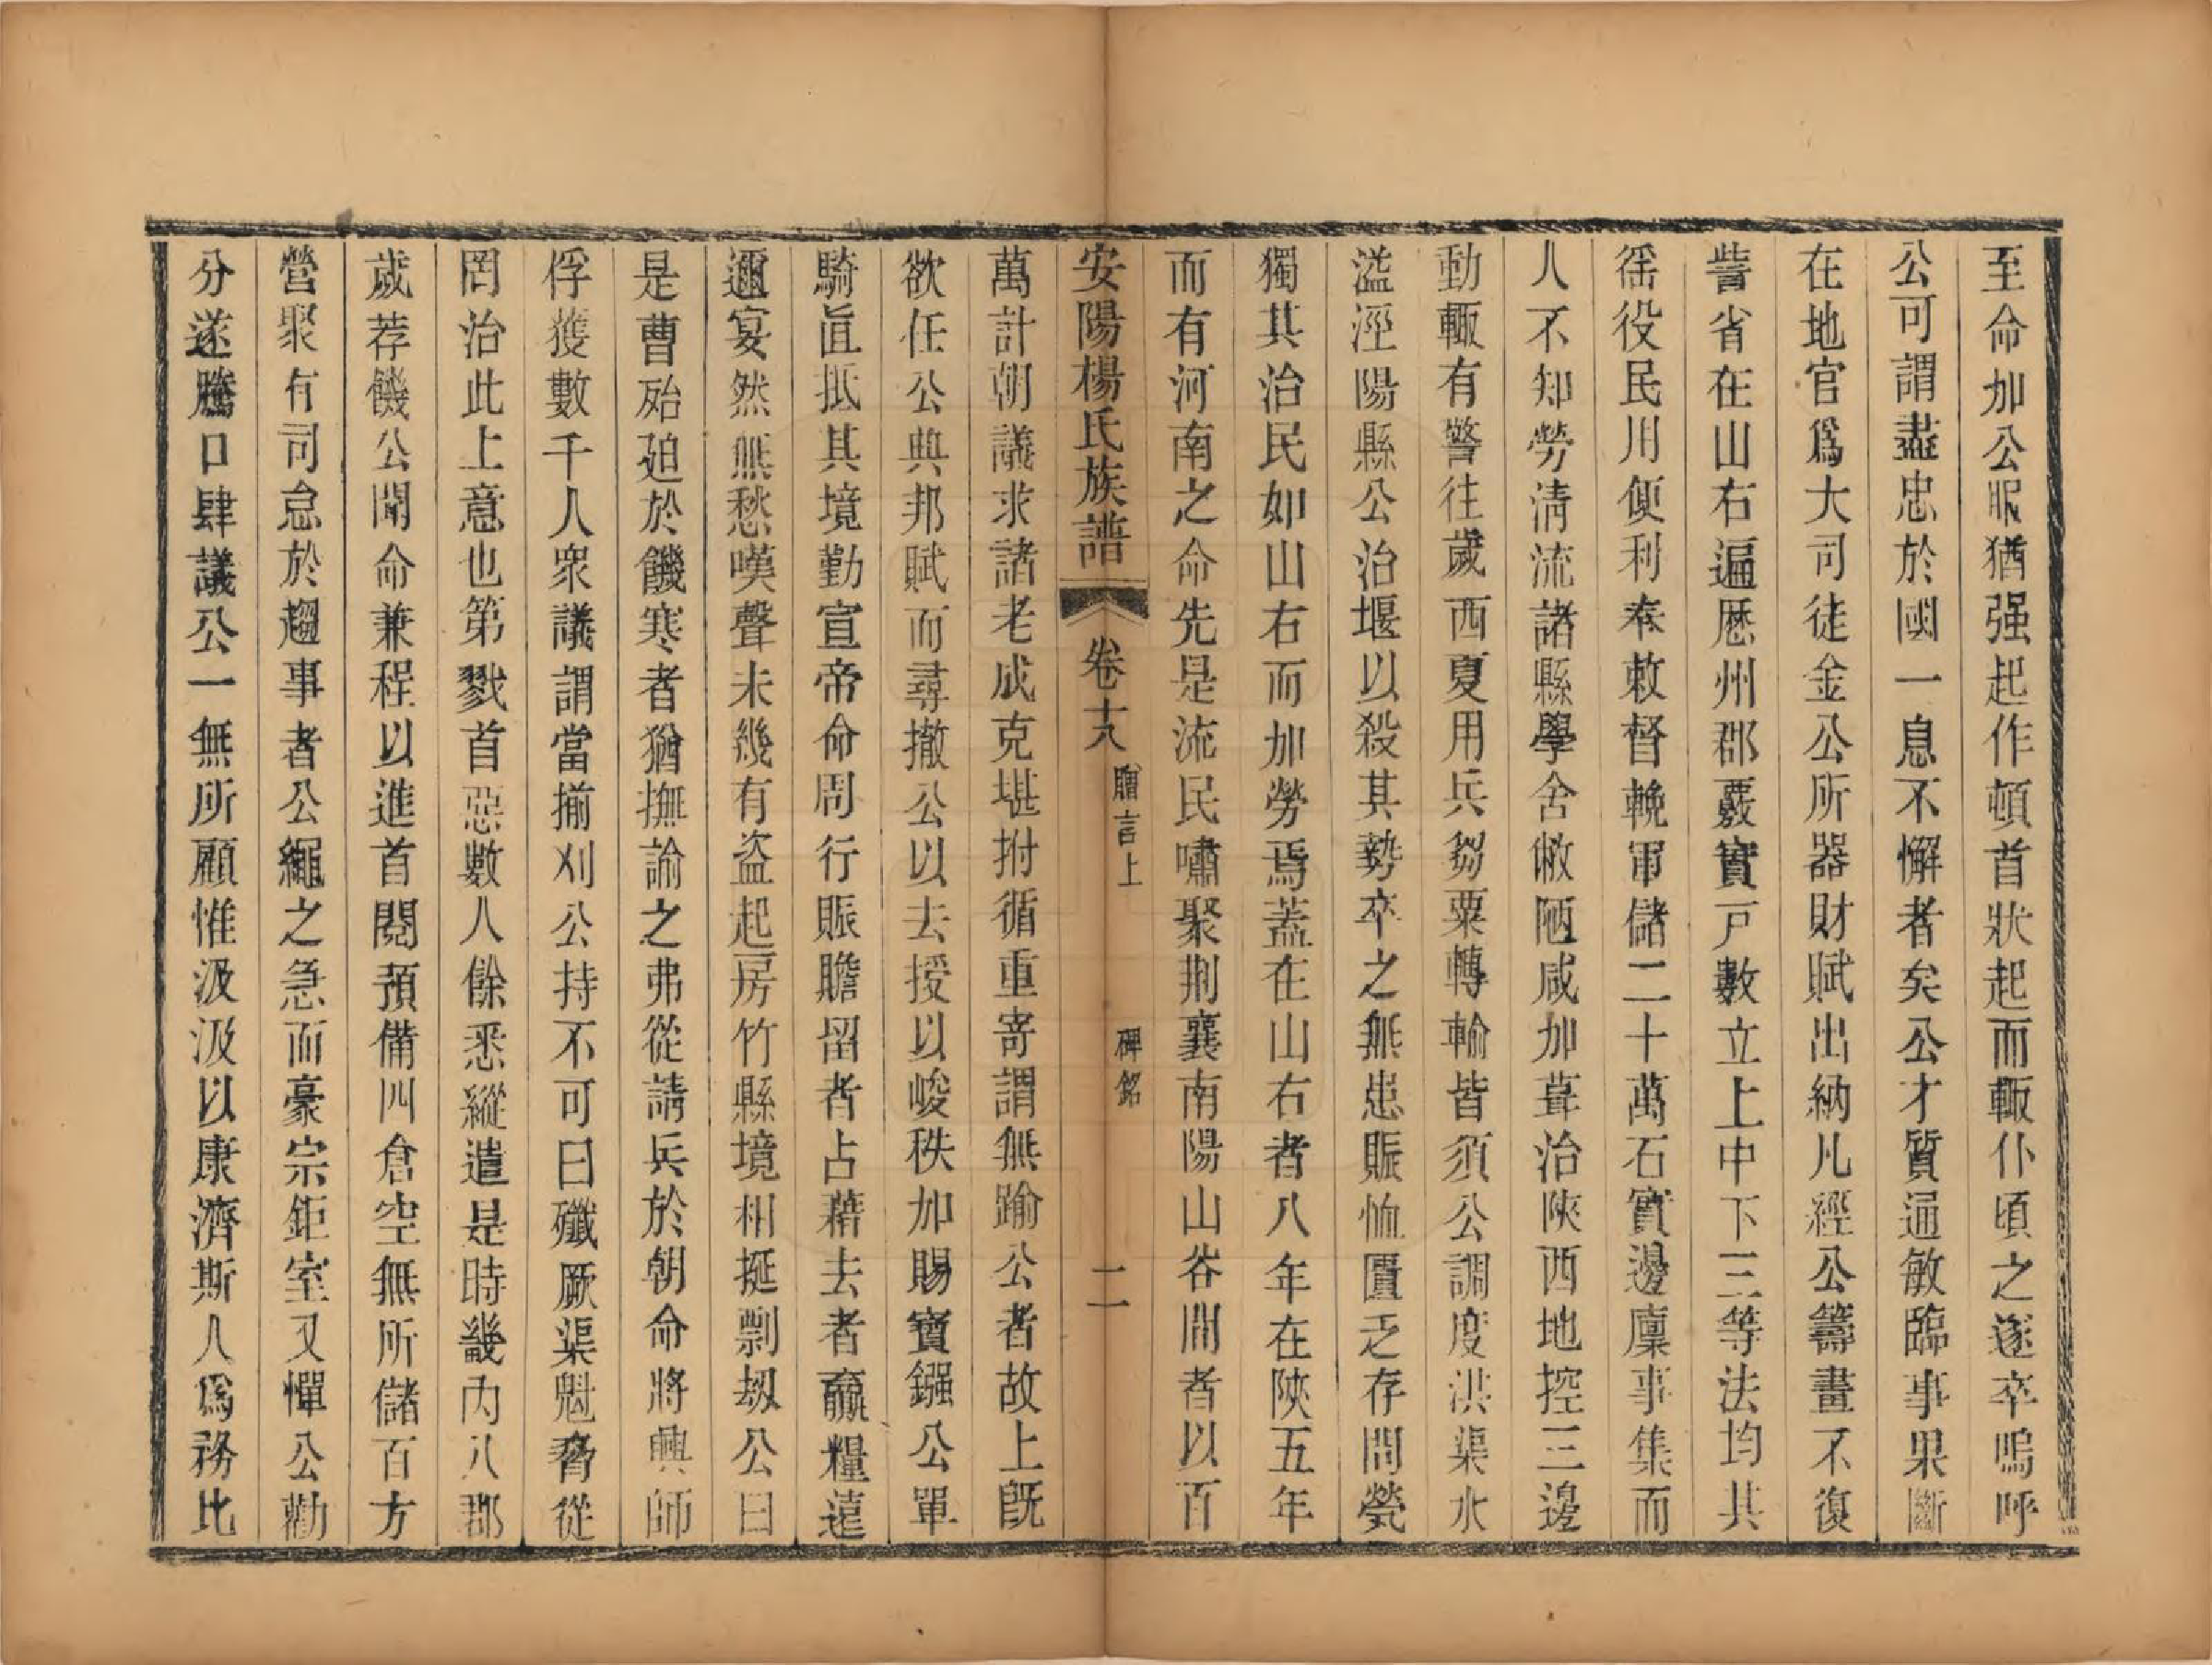 至命加公眂猶强起作頓首狀起而輙仆頃之遂卒嗚呼
公可謂盡忠於國一息不懈者矣公才質通敏臨事果斷
在地官爲大司徒金公所器財賦出納凡經公籌畫不復
訾省在山右遍厯州郡覈實戸數立上中下三等法均其
徭役民用便利奉敕督輓軍儲二十萬石實邊廩事集而
人不知勞清流諸縣學舍敝陋咸加葺治陝西地控三邊
動輙有警往歲西夏用兵芻粟轉輸皆須公調度洪渠水
溢涇陽縣公治堰以殺其勢卒之無患賑恤匱乏存問煢
獨其治民如山右而加勞焉蓋在山右者八年在陝五年
而有河南之命先是流民嘯聚荆襄南陽山谷間者以百
安陽楊氏族譜 卷十八 贈言上 碑銘 二
萬計朝議求諸老成克堪拊循重寄謂無踰公者故上旣
欲任公典邦賦而尋撤公以去授以峻秩加賜寶鏹公單
騎直抵其境勤宣帝命周行賑贍留者占藉去者齎糧遠
邇宴然無愁嘆聲未幾有盗起房竹縣境相挻剽刼公曰
是曹殆廹於饑寒者猶撫諭之弗從請兵於朝命將興師
俘獲數千人衆議謂當揃刈公持不可曰殲厥渠魁脅從
罔治此上意也第戮首惡數人餘悉縱遣是時畿内八郡
歲荐饑公聞命兼程以進首閱預備四倉空無所儲百方
營聚有司怠於趨事者公繩之急而豪宗鉅室又憚公勸
分遂騰口肆議公一無所顧惟汲汲以康濟斯人爲務比